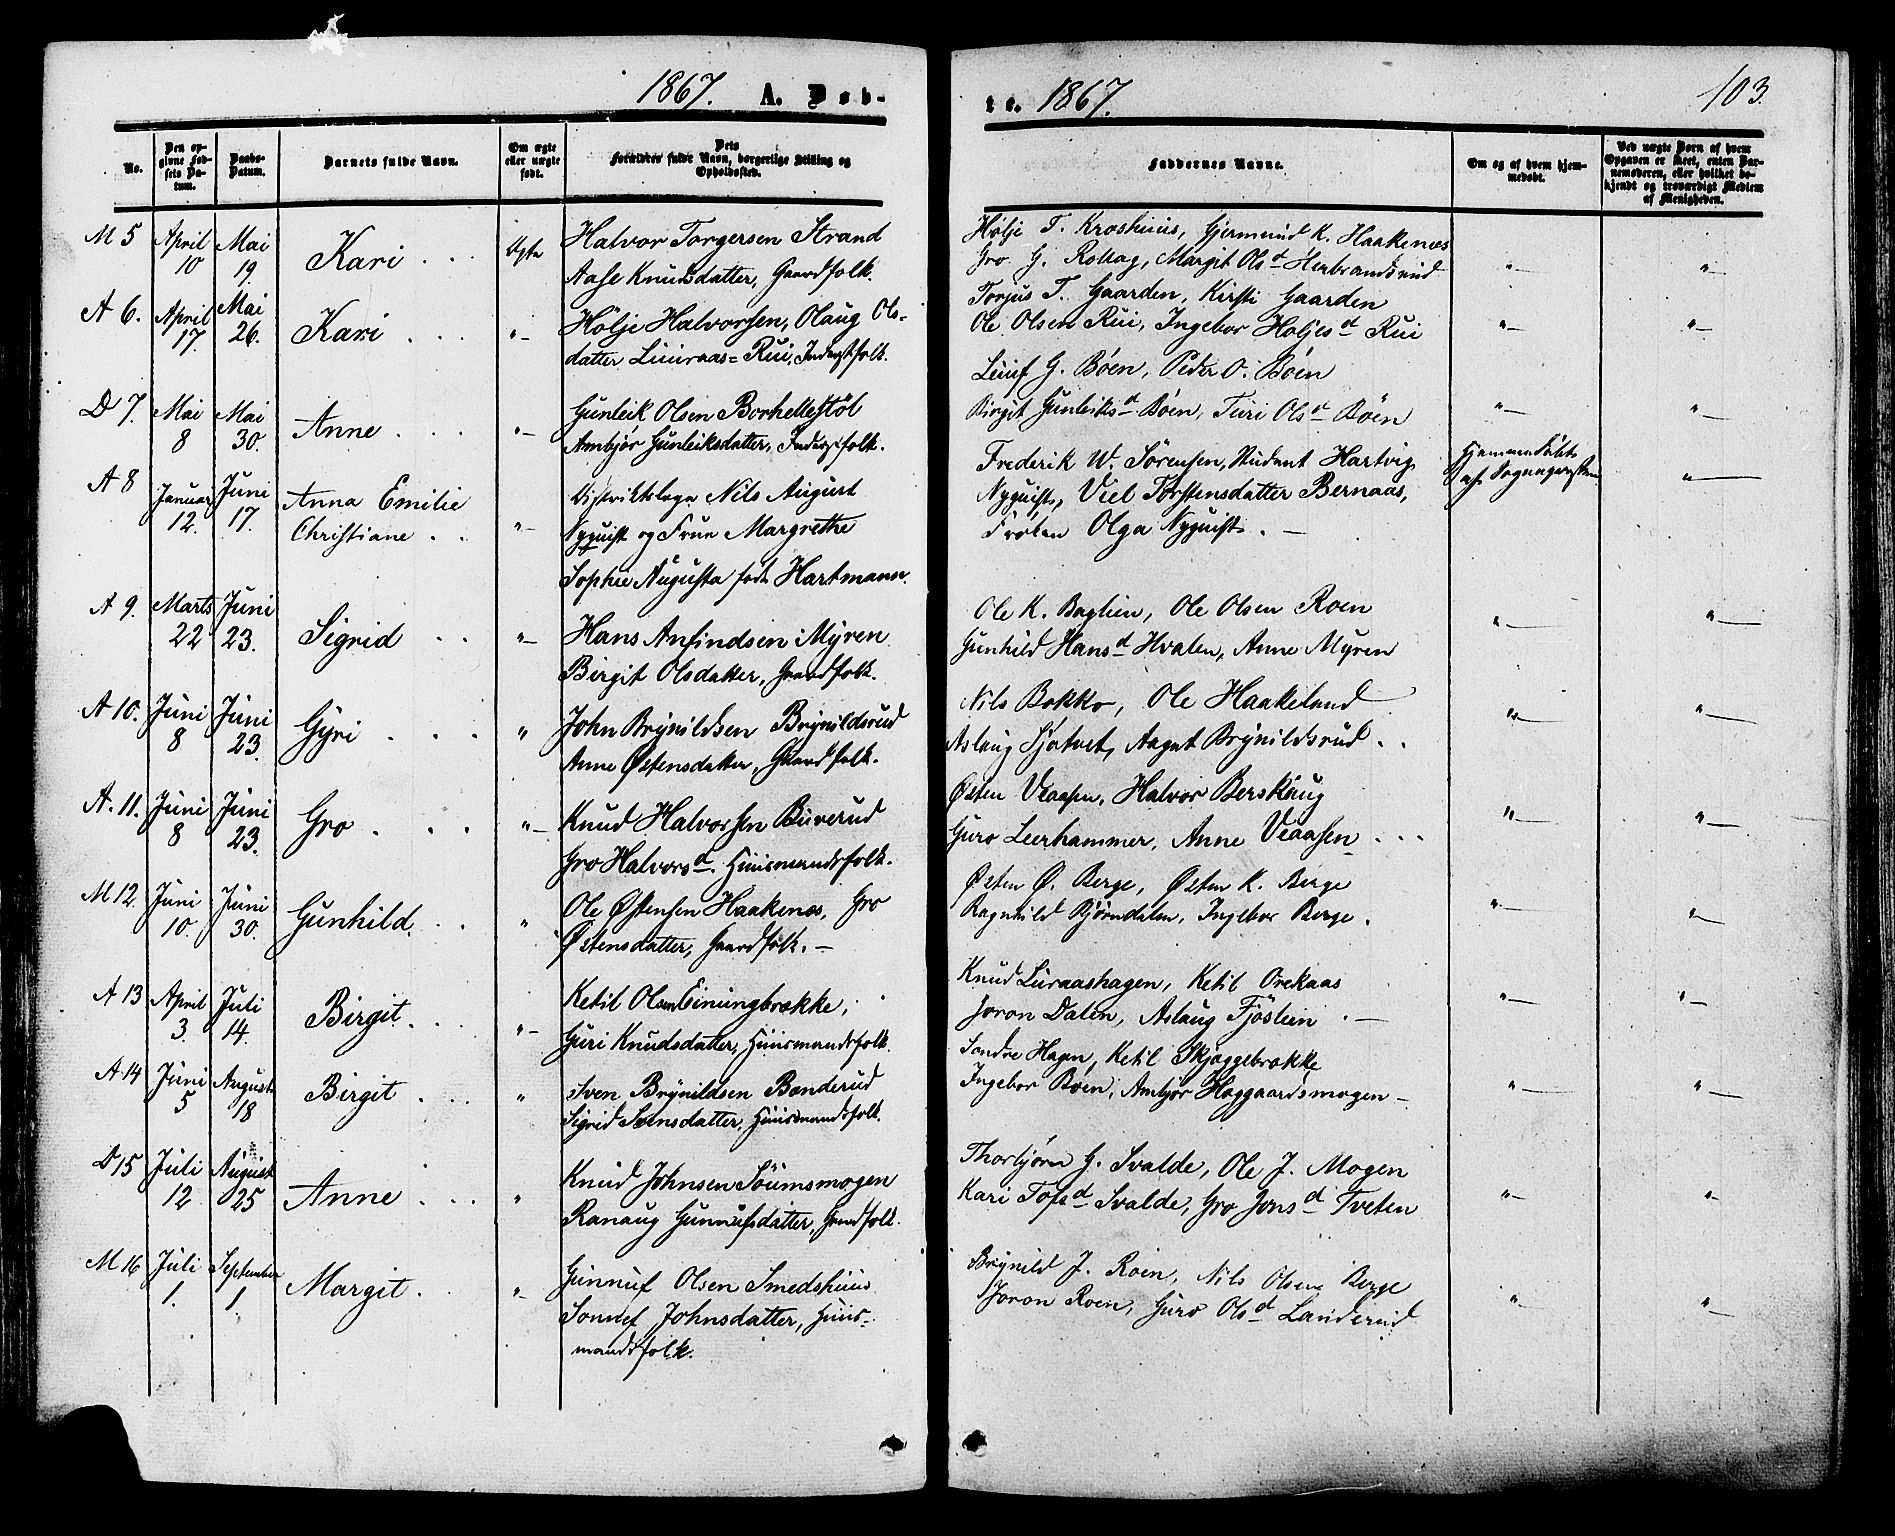 1867. A. Døb-
No.
Den opgivne Fødsels Datum.
Daabs-Datum.
Barnets fulde Navn.
Om ægte eller uægte født.
Dets Forældres fulde Navn, borgerlige Stilling og Opholdssted.
M 5 April 10 Mai 19. Kari Ægte Halvor Torgersen Strand
Aase Knudsdatter, Gaardfolk.
A 6. April 17. Mai 26. Kari "- Holje Halvorsen, Olaug Ols-
datter Luuraas=Rui, Inderstfolk.
D 7. Mai 8 Mai 30. Anne "- Gunleik Olsen Borhellestöl
Ambjør Gunleiksdatter, Inderstfolk.
A 8 Januar 12. Juni 17. Anna Emilie Christiane "- Distriktslæge Nils August
Nyquist og Frue Margrethe
Sophie Augusta født Hartmann.
A 9. Marts 22 Juni 23. Sigrid "- Hans Anfindsen Myren
Birgit Olsdatter, Gaardfolk.
A 10. Juni 8 Juni 23. Gyri " John Brynildsen Brynildsrud
Anne Østensdatter, Gaardfolk.
A. 11. Juni 8 Juni 23. Gro "- Knud Halvorsen Buverud
Gro Halvorsd. Huusmandsfolk.
M 12. Juni 10. Juni 30. Gunhild " Ole Østensen Haakenæs, Gro
Østensdatter, Gaardfolk. —
A 13 April 3. Juli 14. Birgit "- Ketil Olsen Einungbrække,
Guri Knudsdatter, Huusmandsfolk.
A 14 Juni 5 August 18 Birgit " Sven Brynildsen Bonderud
Sigrid Svensdatter, Huusmandsfolk.
D 15 Juli 12 August 25 Anne " Knud Johnsen Söumsmogen
Ranaug Gunnufsdatter, Gaardfolk.
M 16 Juli 1. September 1. Margit "- Gunnuf Olsen Smedshuus
Sonnef Johnsdatter, Huus-
mandsfolk.
te. 1867. 103.
Faddernes Navne.
Om og af hvem hjemmedøbt.
Ved uægte Børn af hvem Opgaven er skeet, enten Barnemoderen, eller hvilket bekjendt og troværdigt Medlem af Menigheden.
Holje T. Kroshuus, Gjermund K. Haakenæs
Gro G. Rollag, Margit Olsd Herbrandsrud "- "-
Torjus T. Gaarden, Kirsti Gaarden
Ole Olsen Rui, Ingebor Holjesd Rui "- "-
Leiuf G. Bøen, Peder O. Bøen
Birgit Gunleiksd Bøen, Turi Olsd Bøen "- "-
Frederik W. Sørensen, Student Hartvig Hjemmedøbt
Nyquist, Viel Torstensdatter Bernaas, af Sognepresten "-
Frøken Olga Nyquist. —
Ole K. Baglien, Ole Olsen Roen
Gunhild Hansd Hvalen, Anne Myren "- "-
Nils Bakko, Ole Haakeland
Aslaug Fjøtvet, Aagot Brynildsrud "- "-
Østen Vaasen, Halvor Berskaug
Guro Leerhammer, Anne Vaasen "- "-
Østen Ø. Berge, Østen K. Berge
Ragnhild Bjørndalen, Ingebor Berge. "- "-
Knud Luraashagen, Ketil Orekaas
Joron Dalen, Aslaug Fjöslien. — "- "-
Sondre Hagen, Ketil Skjæggebrække
Ingebor Bøen, Ambjør Haggaardsmogen — "- "-
Thorbjørn G. Svalde, Ole J. Mogen
Kari Tofsd Svalde, Gro Jonsd Tveten "- "-
Brynild J. Roen, Nils Olsen Berge
Joron Roen, Guro Olsd Landerud "- "-